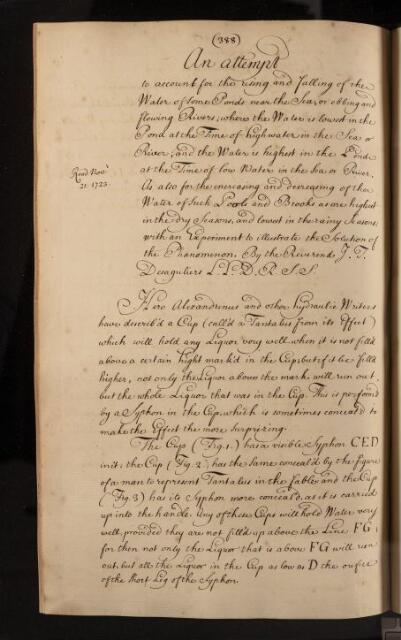 (388)
An attempt
to account for the rising and falling of the
Water of some Ponds near the Sea, or ebbing and
flowing Rivers; where the Water is lowest in the
Pond at the Time of high water in the Sea or
River; and the Water is highest in the Pond
at the Time of low Water in the Sea or River.
As also for the encreasing and decreasing of the
Water of Such Pools and Brooks as are highest
in the dry Seasons, and lowest in the rainy Seasons
with an Experiment to illustrate the Solution of
the Phænomenon. By the Reverend J. T.
Desaguliers L. L. D. R. S. S.
Read Novr
21. 1723.
Hero Alexandrinus and other hydraulic Writers
have describ'd a Cup (call'd a Tantalus from its Effect)
which will hold any Liquor very well when it is not fill'd
above a certain hight mark'd in the Cup, but if it be fill'd
higher, not only the Liquor above the mark will run out,
but the whole Liquor that was in the Cup. This is perform'd
by a Syphon in the Cup, which is sometimes conceal'd to
make the Effect the more Surprizing.
The Cup (Fig. 1.) has a visible Syphon CED
in it: the Cup (Fig. 2) has the Same conceal'd by the figure
of a man to represent Tantalus in the fable: and the Cup
(Fig. 3) has its Syphon more conceal'd, as it is carried
up into the handle. Any of these Cups will hold Water very
well, provided they are not fill'd up above the Line FG;
for then not only the Liquor that is above FG will run
out, but all the Liquor in the Cup as low as D the orifice
of the Short Leg of the Syphon.